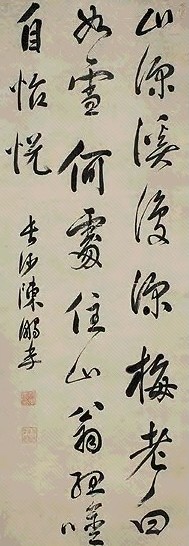 山深溪復深梅老白
如雪何處住山翁
自怡悅
長沙陳鵬年